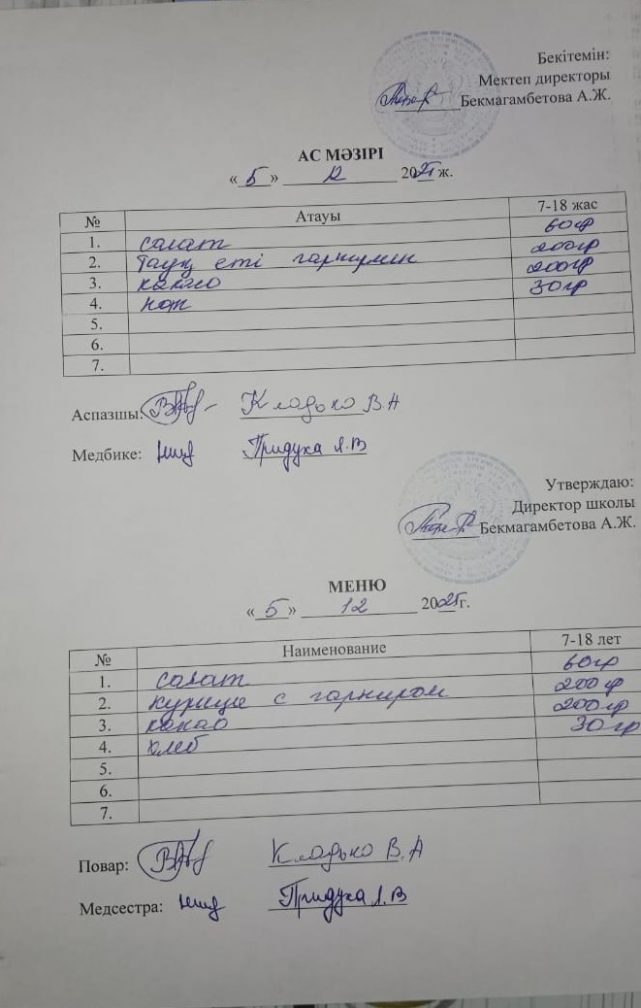 Бекітемін:
Мектеп директоры
Бекмагамбетова А.Ж.
АС МӘЗІРІ
« 5 » 12 2025 ж.
№ Атауы 7-18 жас
1. салат 60гр
2. Тауық еті гарнирмен 200гр
3. какао 200гр
4. нан 30гр
5.
6.
7.
Аспазшы: Кладько В А
Медбике: Придуха Л.В
Утверждаю:
Директор школы
Бекмагамбетова А.Ж.
МЕНЮ
« 5 » 12 2025г.
№ Наименование 7-18 лет
1. салат 60гр
2. курица с гарниром 200гр
3. какао 200гр
4. хлеб 30гр
5.
6.
7.
Повар: Кладько В.А
Медсестра: Придуха Л.В